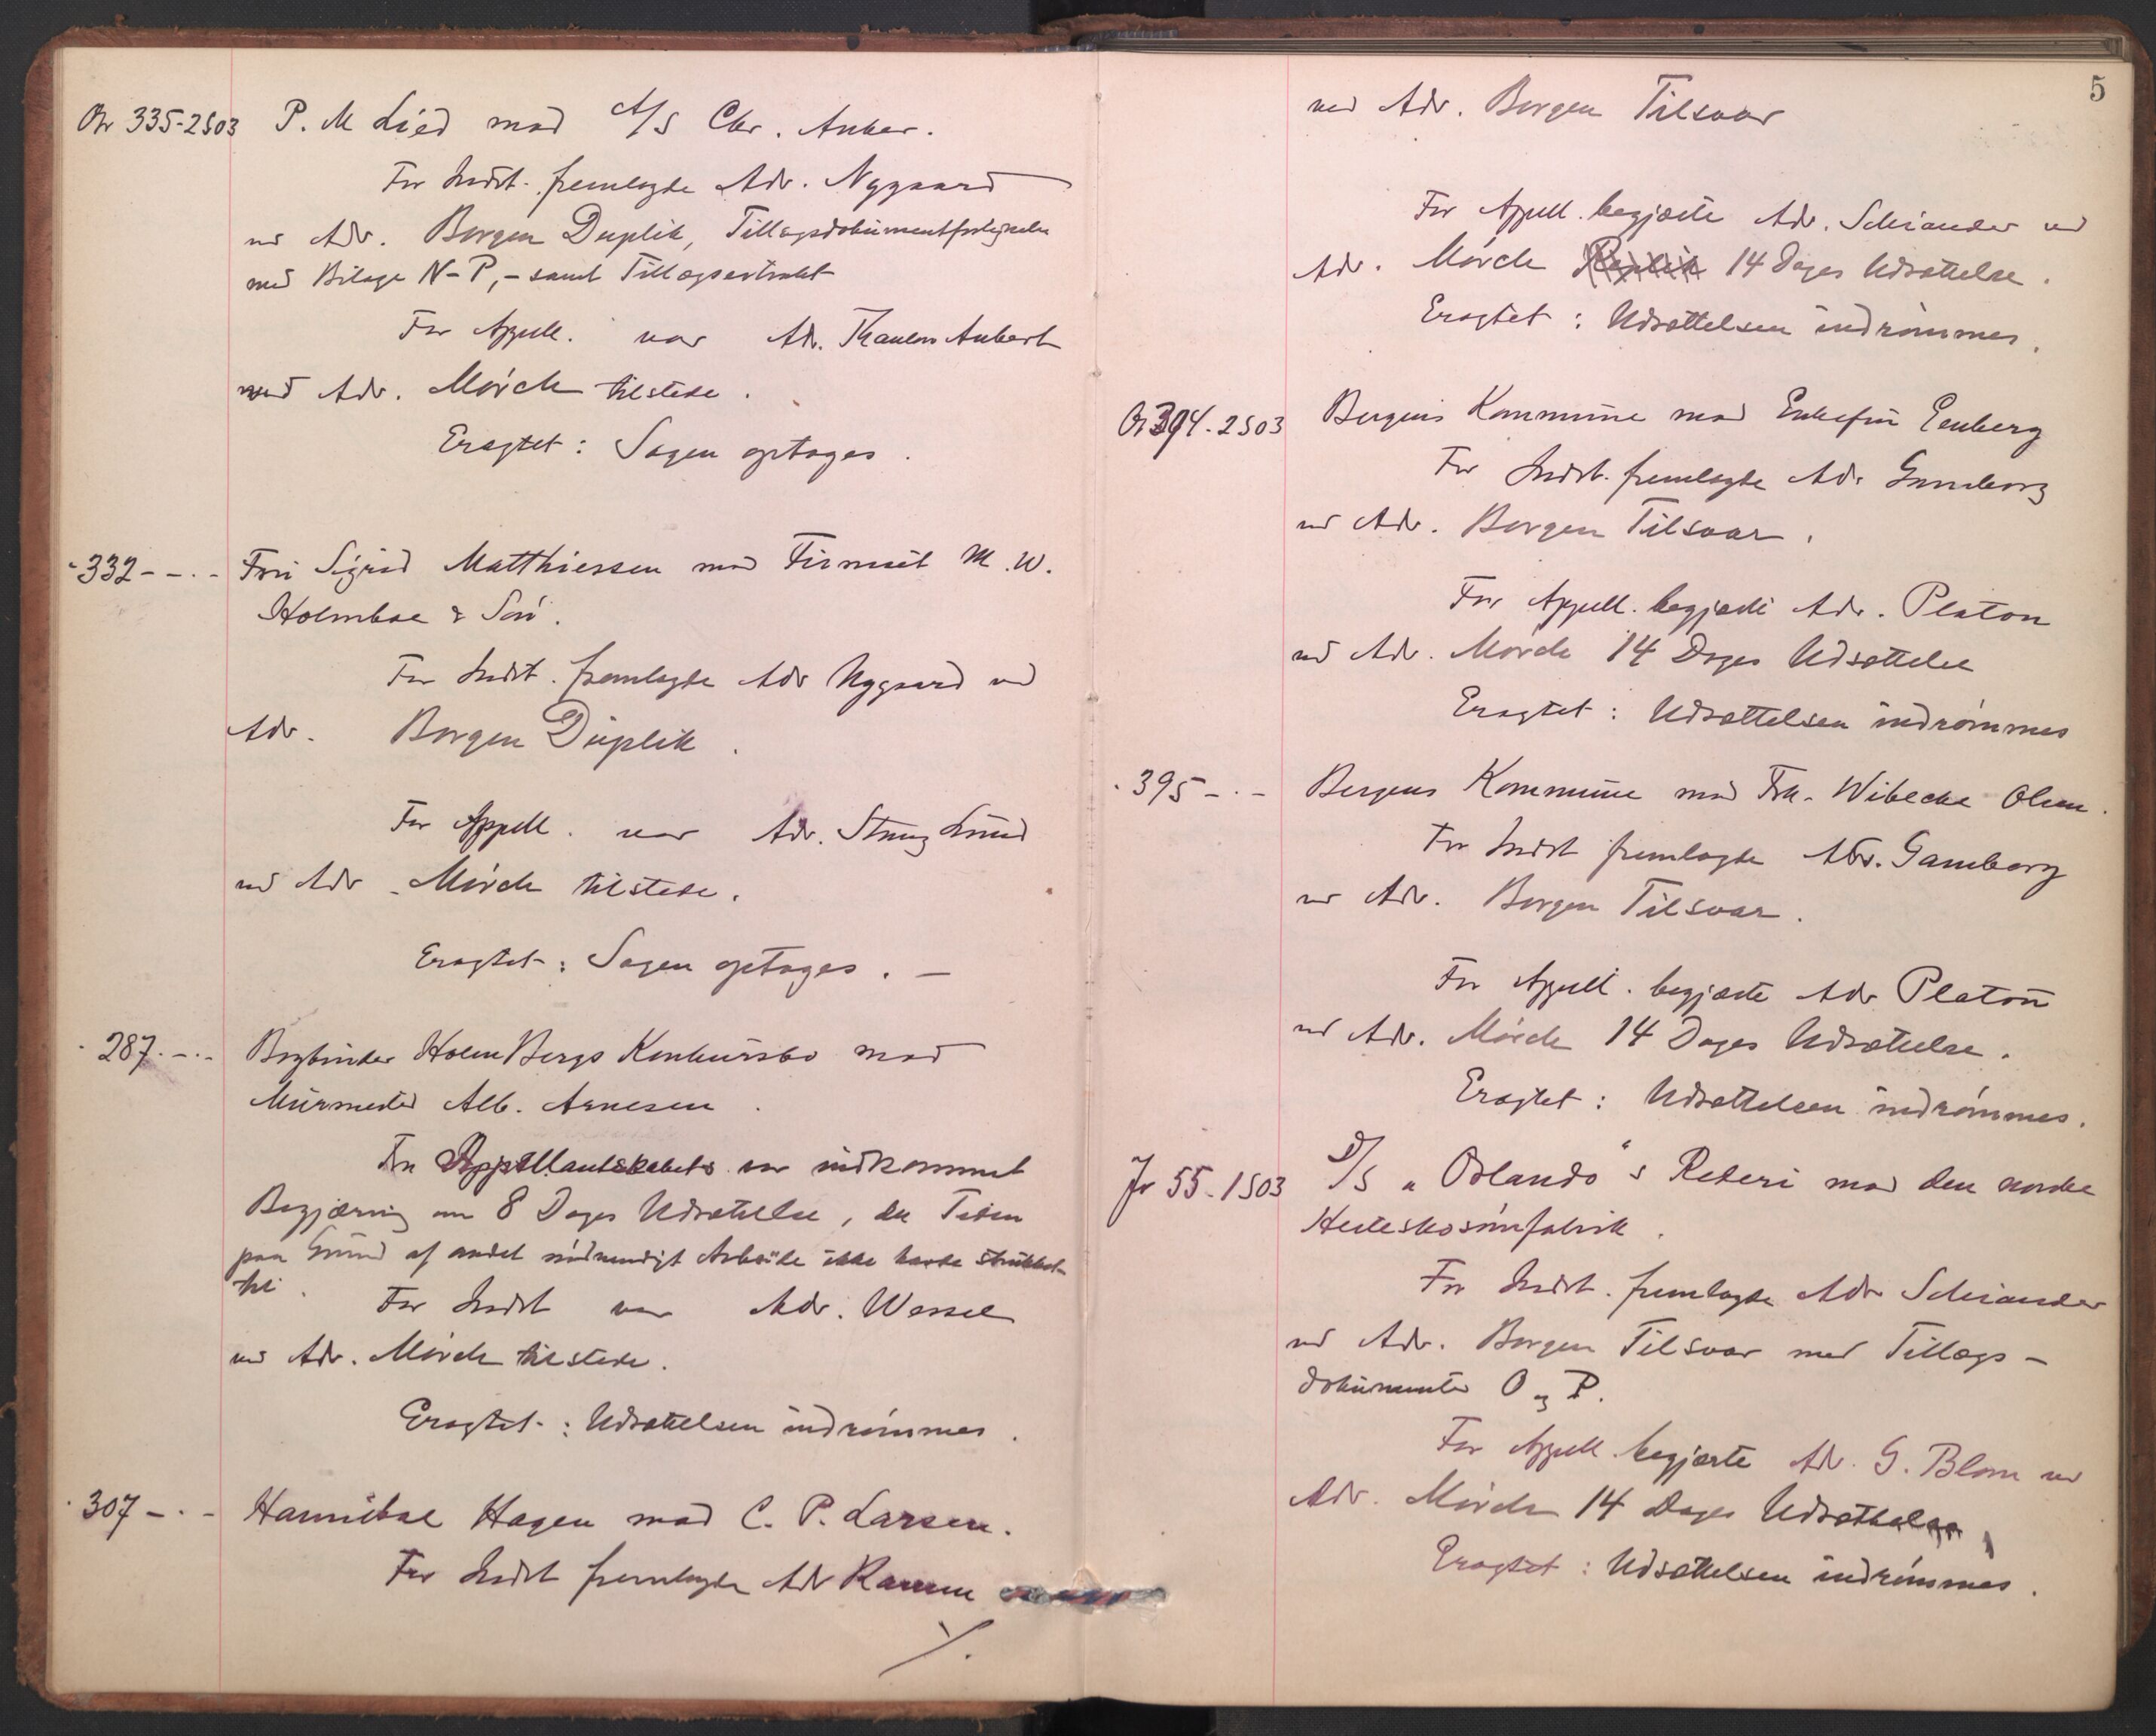 Or 335-2S03 P. M Lied mod A/S Chr. Anker.
For Indst. fremlagde Adv. Nygaard
ved Adv. Borgen Duplik, Tillægsdokumentfortegnelse
med Bilage N-P, - samt Tillægsextrakt
For Appell. var Adv. Thaulow Aubert
ved Adv. Mörch tilstede.
Eragtet: Sagen optages.
" 332 - - . - Fru Sigrid Matthiessen mod Firmaet M. W.
Holmboe & Sön.
For Indst. fremlagde Adv Nygaard ved
Adv. Borgen Duplik.
For Appell. var Adv. Stang Lund
ved Adv. Mörch tilstede.
Eragtet: Sagen optages. -
" 287. - . - Bogbinder Holm Bergs Konkursbo mod
Murmester Alb. Arnesen.
Fra Appellantskabets var indkommet
Begjæring om 8 Dages Udsættelse, da Tiden
paa Grund af andet nödvendigt Arbeide ikke havde strukket
til.
For Indst var Adv. Wessel
ved Adv. Mörch tilstede.
Eragtet: Udsættelsen indrömmes.
" 307 - . - Hannibal Hagen mod C. P. Larsen.
For Indst fremlagde Adv Ramm
./.
5
ved Adv. Borgen Tilsvar
For Appell. begjærte Adv. Schiander ved
Adv. Mörch Replik 14 Dages Udsættelse.
Eragtet: Udsættelsen indrömmes.
Or 394-2S03 Bergens Kommune mod Enkefru Isenberg
For Indst. fremlagde Adv. Gamborg
ved Adv. Borgen Tilsvar.
For Appell. begjærte Adv. Platou
ved Adv. Mörch 14 Dages Udsættelse
Eragtet: Udsættelsen indrömmes
" 395 - . - Bergens Kommune mod Frk. Wibecke Olsen.
For Indst fremlagde Adv. Gamborg
ved Adv. Borgen Tilsvar.
For Appell. begjærte Adv Platou
ved Adv. Mörch 14 Dages Udsættelse.
Eragtet: Udsættelsen indrömmes.
Jr 55-1S03 D/S "Orlando"s Rederi mod den norske
Hesteskosömfabrik.
For Indst. fremlagde Adv Schiander
ved Adv. Borgen Tilsvar med Tillægs-
dokumenter O og P.
For Appell. begjærte Adv. G. Blom ved
Adv. Mörch 14 Dages Udsættelse,
Eragtet: Udsættelsen indrömmes.